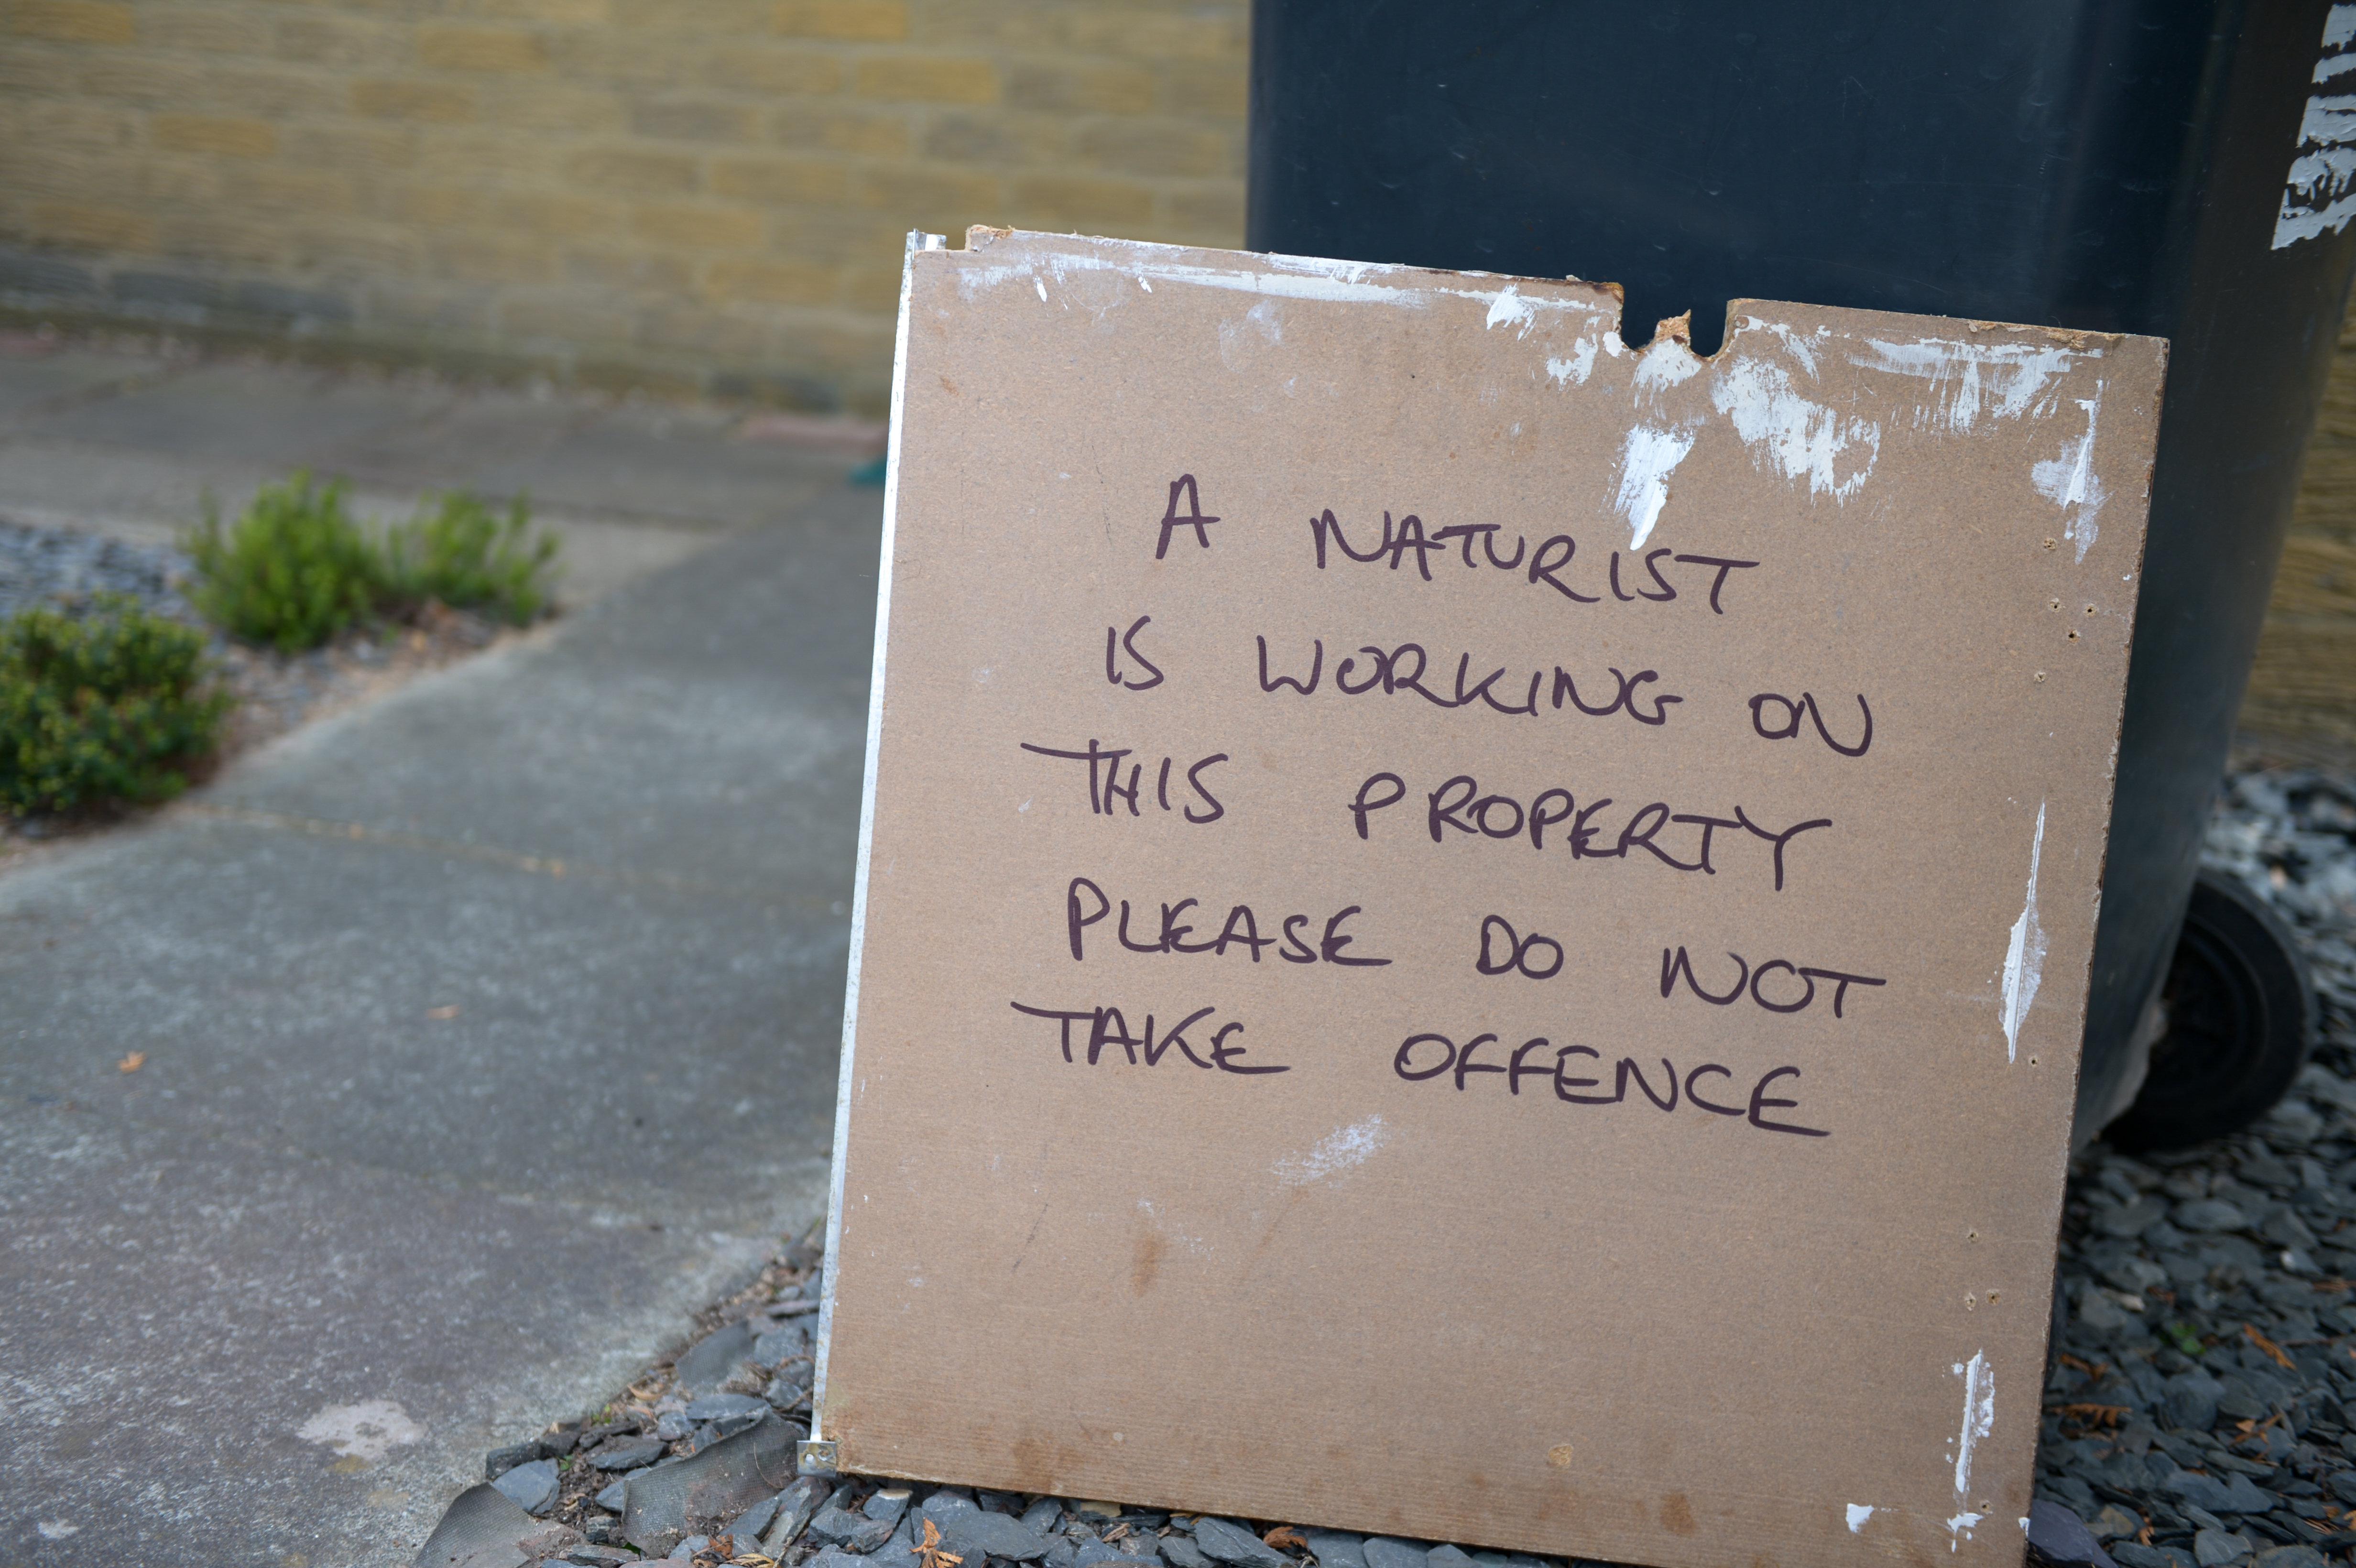 A NATURIST
IS WORKING ON
THIS PROPERTY
PLEASE DO NOT
TAKE OFFENCE